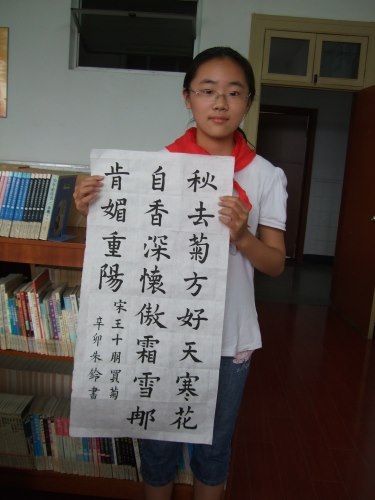 秋去菊方好天寒花
自香深懷傲霜雪那
肯媚重陽
宋王十朋買菊
辛卯朱鈴書